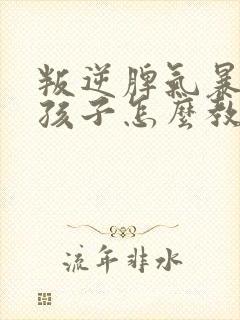 叛逆脾氣暴
孩子怎麽教
流年非水